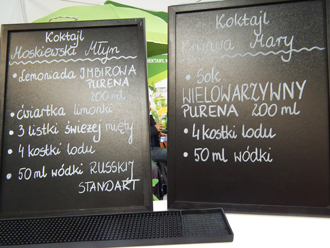 Koktajl
Moskiewski Młyn
• Lemoniada IMBIROWA
PURENA
200 ml
• ćwiartka limonki
• 3 listki świeżej mięty
• 4 kostki lodu
• 50 ml wódki RUSSKIJ
STANDART
Koktajl
Krwawa Mary
• Sok
WIELOWARZYWNY
PURENA 200 ml
• 4 kostki lodu
• 50 ml wódki